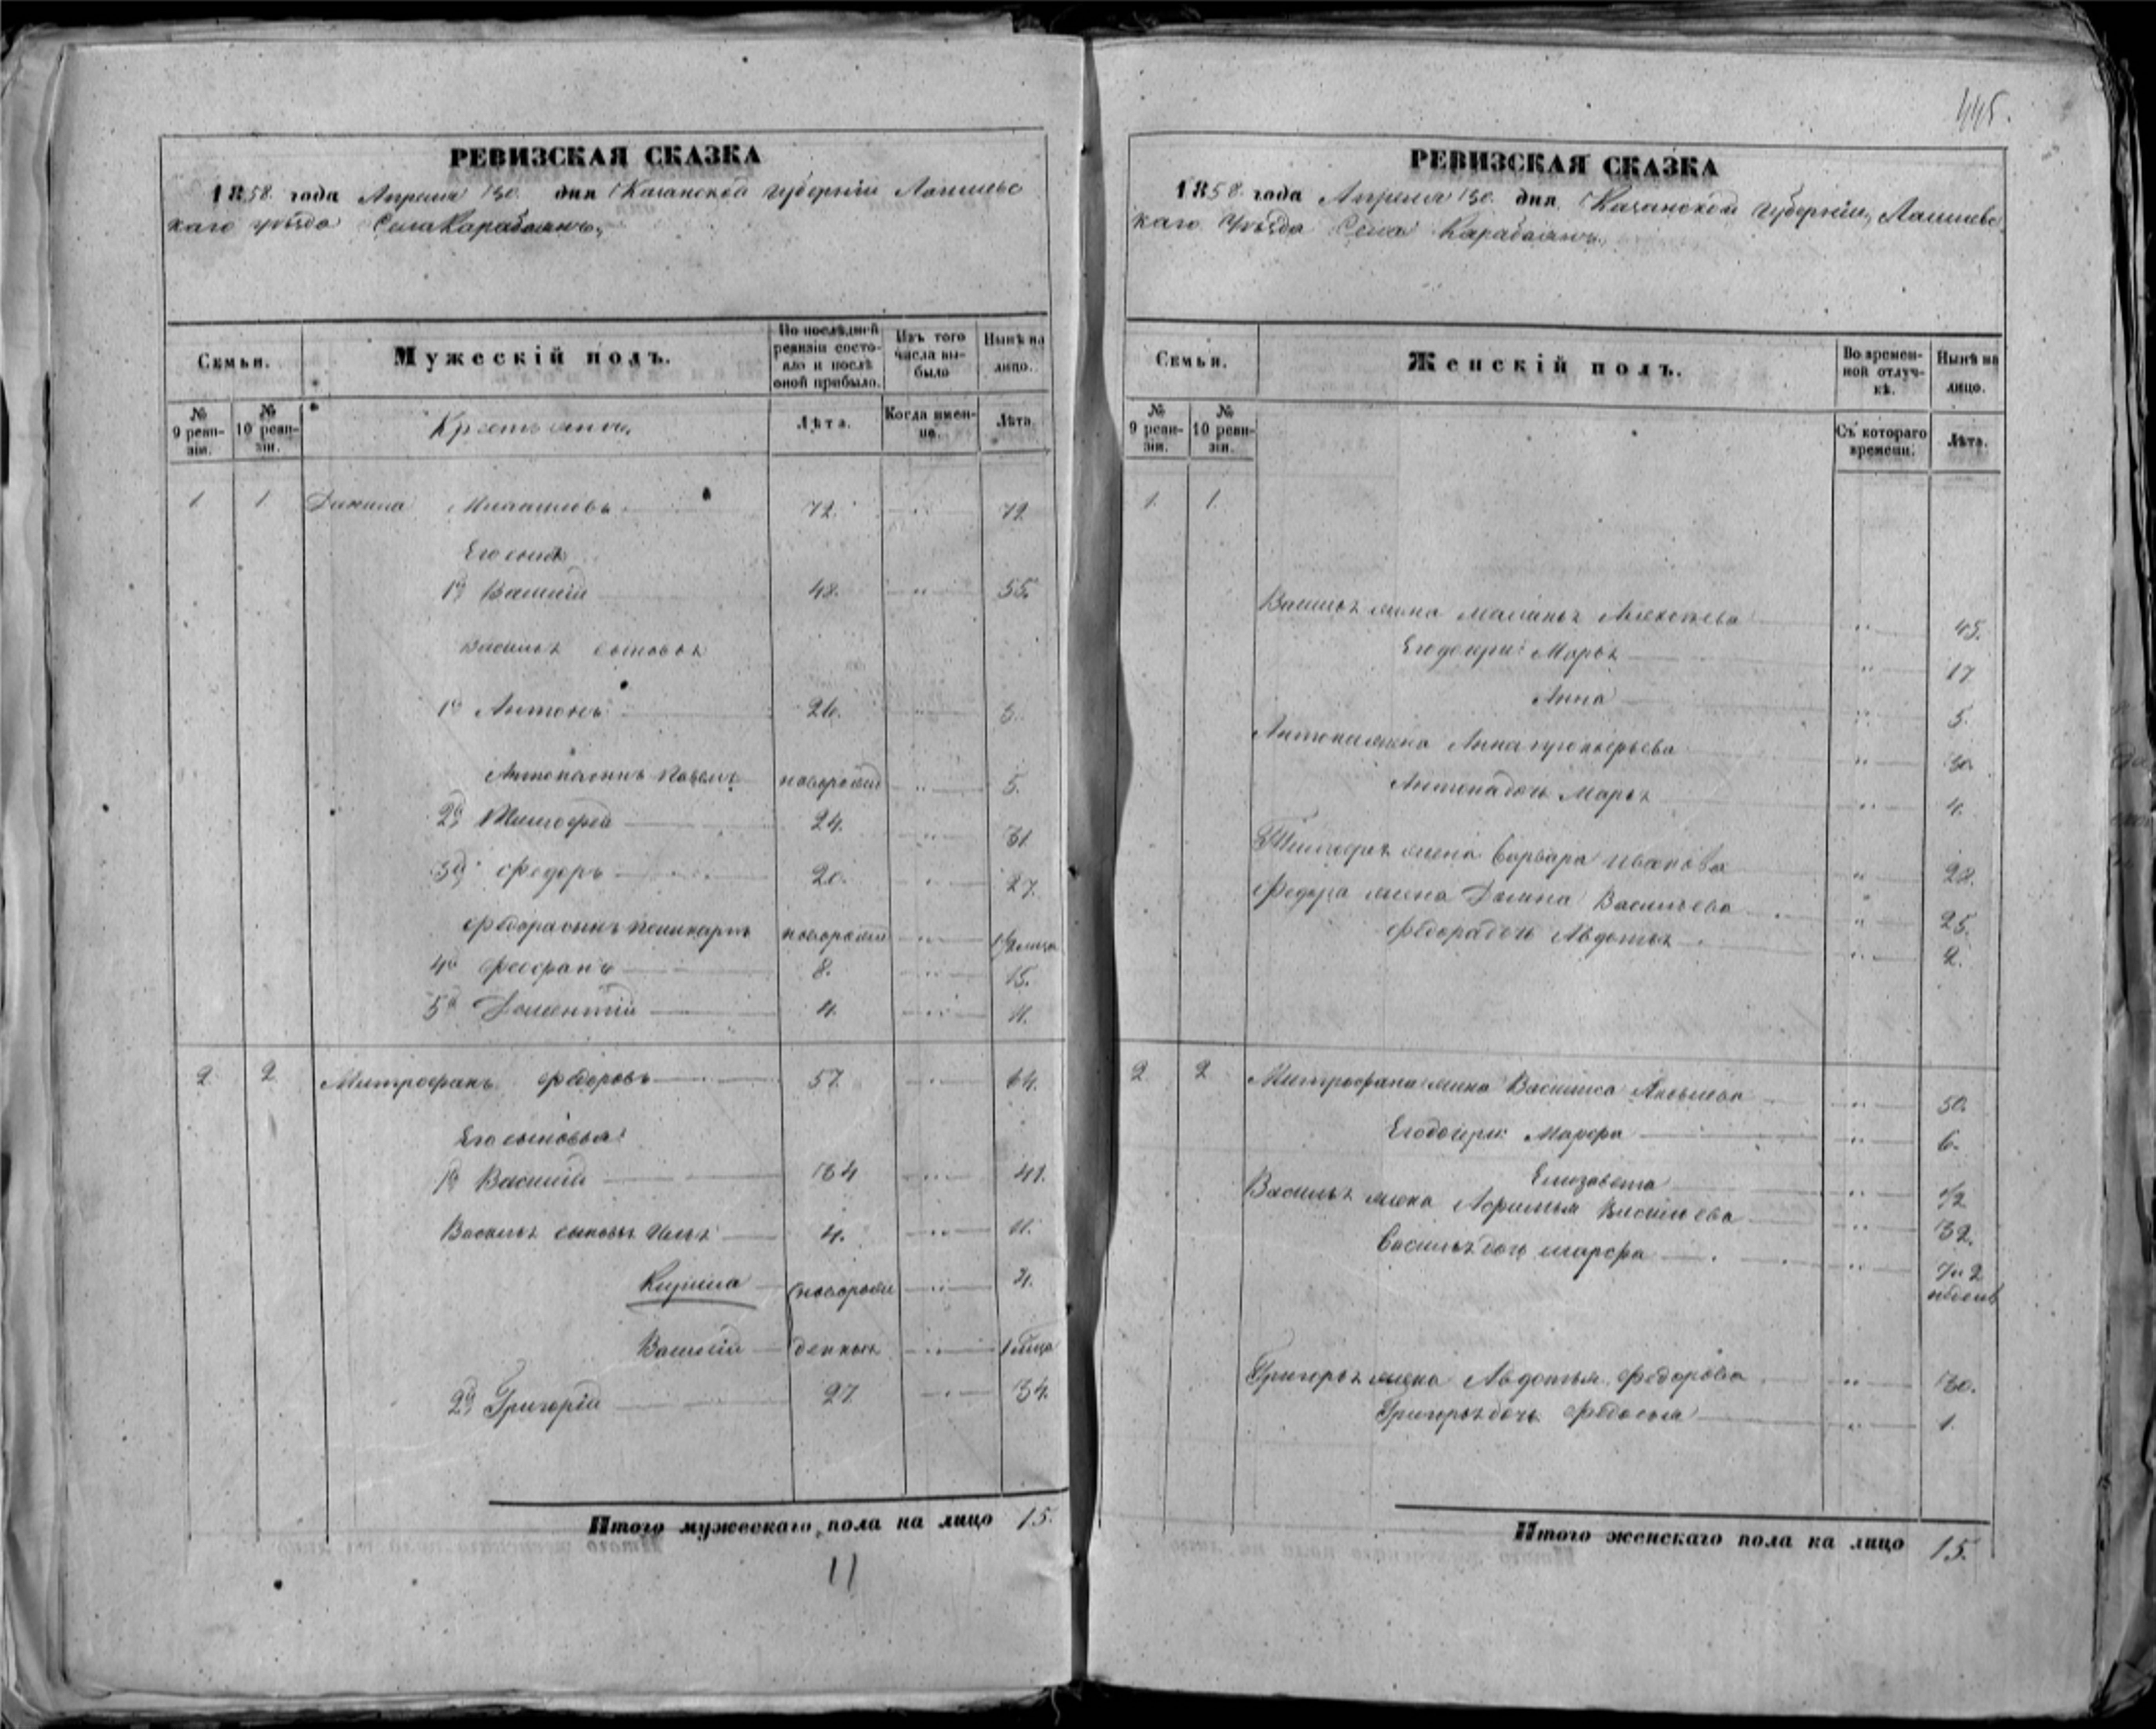 445.
РЕВИЗСКАЯ СКАЗКА
1858 года Апреля 30 дня Казанской губернии Лаишевс
каго уѣзда Села Карабаянъ
Семьи.
Мужескій полъ.
По послѣдней ревизіи состояло и послѣ оной прибыло.
Изъ того числа выбыло
Нынѣ на лицо.
№ 9 ревизіи.
№ 10 ревизіи.
Крестьяне
Лѣта.
Когда именно.
Лѣта.
1 1 72. 72
Его сынъ
1й Василій 48. 55.
Василья сыновья
1й Антонъ 26.
Антона сынъ Павелъ новорожд 5.
2й Тимофей 24. 31
3й Федоръ 20. 27.
Федора сынъ новорожд
4й Феофанъ 8. 15.
5й Дометій 4. 11.
2 2 Митрофанъ Федоровъ 57 64.
Его сыновья:
1й Василій 34 41.
Василья сыновья Илья 4. 11.
Кузма новорож
Василій денные
2й Григорій 27 34.
Итого мужескаго пола на лицо 15.
11
РЕВИЗСКАЯ СКАЗКА
1858 года Апреля 30 дня Казанской губерніи, Лаишевс
каго Уѣзда Села Карабаянъ
Семьи.
Женскій полъ.
Во временной отлучкѣ.
Нынѣ на лицо.
№ 9 ревизіи.
№ 10 ревизіи.
Съ котораго времени.
Лѣта.
1. 1.
Василья жена Маланья Алексѣева 45.
Его дочери: Марья 17
Анна 5.
Антона жена Анна 30
Антона дочь Марья 4.
Тимофея жена Варвара Иванова 28.
Федора жена Васильева 25.
Федора дочь Авдотья 2.
2 2 Митрофана жена Василиса Яковлева 50.
Его дочери: Марфа 6.
Елизавета 1/2
Василья жена Афимья Васильева 32.
Василья дочь Марфа
недель
Григорья жена Авдотья Федорова 30.
Григорья дочь Федосья 1.
Итого женскаго пола на лицо 15.